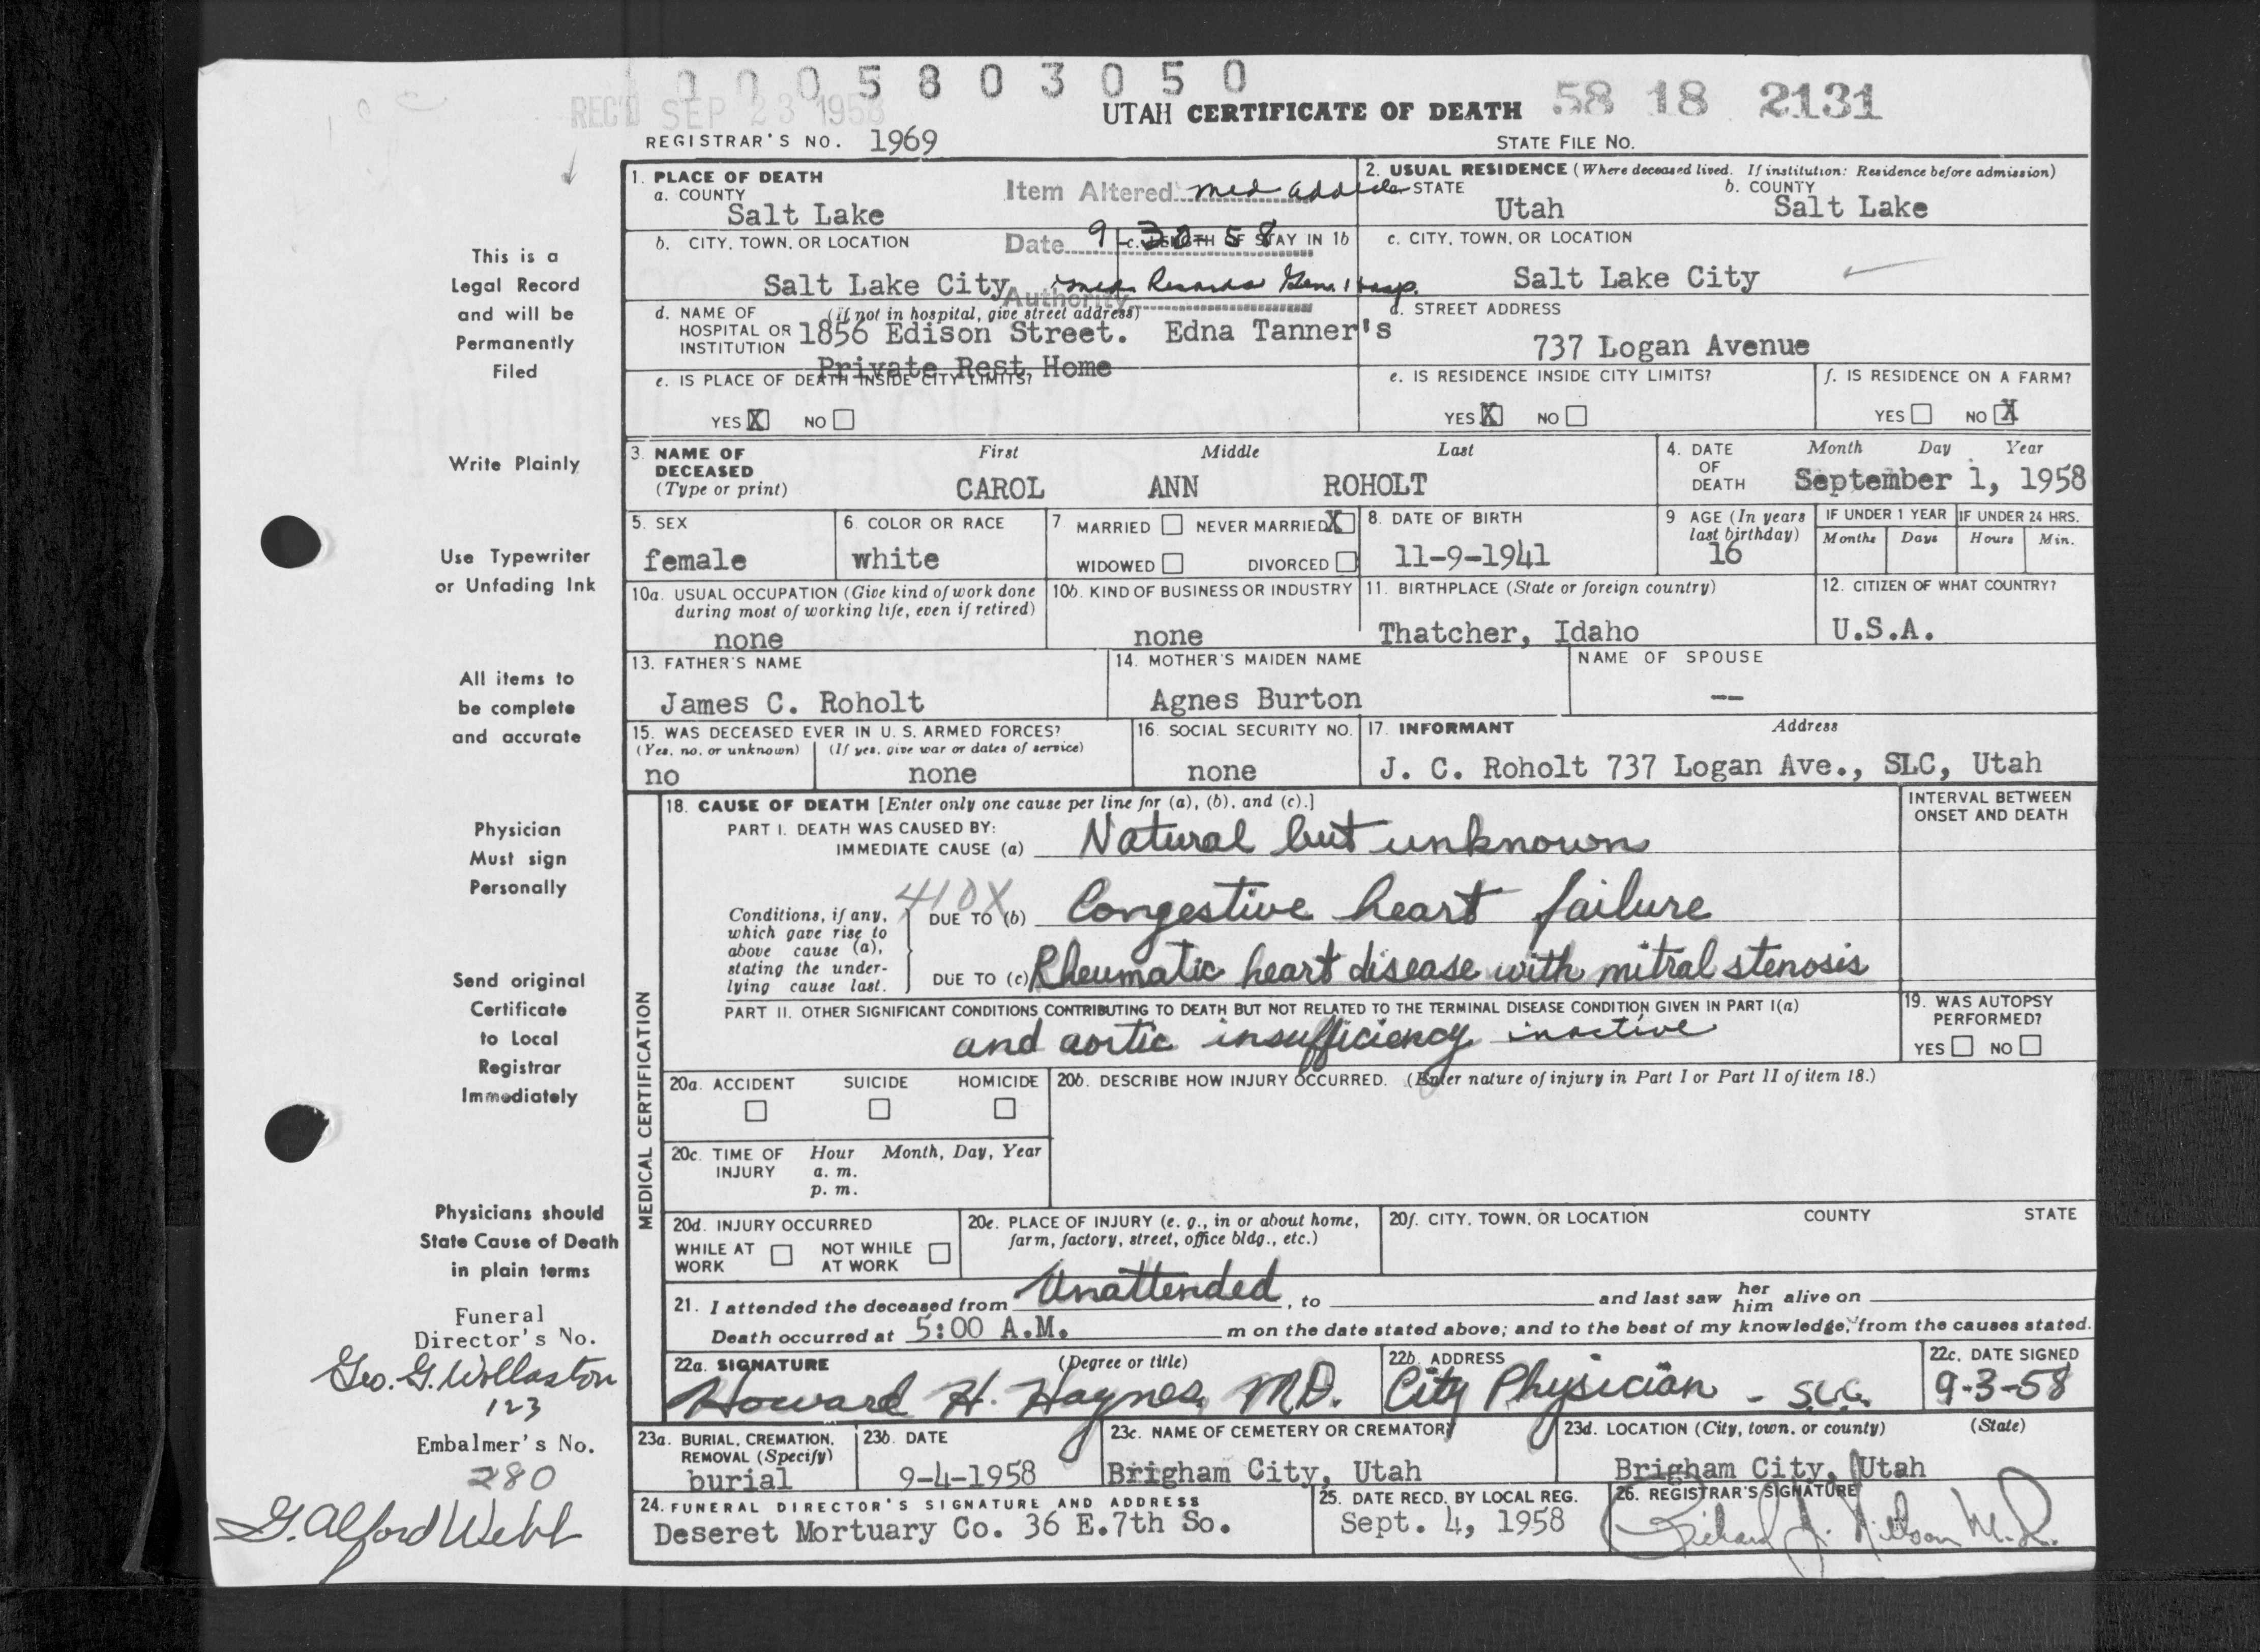 0005803050
REC'D SEP 23 1958
UTAH CERTIFICATE OF DEATH 58 18 2131
REGISTRAR'S NO. 1969
STATE FILE NO.
1. PLACE OF DEATH
a. COUNTY
Salt Lake
Item Altered med added
2. USUAL RESIDENCE (Where deceased lived. If institution: Residence before admission)
STATE
Utah
b. COUNTY
Salt Lake
b. CITY, TOWN, OR LOCATION
Salt Lake City
Date 9 30 58
c. LENGTH OF STAY IN 1b
Authority med Records Gen. Hosp.
c. CITY, TOWN, OR LOCATION
Salt Lake City
d. NAME OF HOSPITAL OR INSTITUTION
(if not in hospital, give street address)
1856 Edison Street. Edna Tanner's
Private Rest Home
d. STREET ADDRESS
737 Logan Avenue
e. IS PLACE OF DEATH INSIDE CITY LIMITS?
YES X NO
e. IS RESIDENCE INSIDE CITY LIMITS?
YES X NO
f. IS RESIDENCE ON A FARM?
YES NO X
3. NAME OF DECEASED
(Type or print)
First Middle Last
CAROL ANN ROHOLT
4. DATE OF DEATH
Month Day Year
September 1, 1958
5. SEX
female
6. COLOR OR RACE
white
7 MARRIED NEVER MARRIED X
WIDOWED DIVORCED
8. DATE OF BIRTH
11-9-1941
9 AGE (In years last birthday)
16
IF UNDER 1 YEAR
Months Days
IF UNDER 24 HRS.
Hours Min.
10a. USUAL OCCUPATION (Give kind of work done during most of working life, even if retired)
none
10b. KIND OF BUSINESS OR INDUSTRY
none
11. BIRTHPLACE (State or foreign country)
Thatcher, Idaho
12. CITIZEN OF WHAT COUNTRY?
U.S.A.
13. FATHER'S NAME
James C. Roholt
14. MOTHER'S MAIDEN NAME
Agnes Burton
NAME OF SPOUSE
--
15. WAS DECEASED EVER IN U. S. ARMED FORCES?
(Yes, no, or unknown) (If yes, give war or dates of service)
no none
16. SOCIAL SECURITY NO.
none
17. INFORMANT Address
J. C. Roholt 737 Logan Ave., SLC, Utah
MEDICAL CERTIFICATION
18. CAUSE OF DEATH [Enter only one cause per line for (a), (b), and (c).]
INTERVAL BETWEEN ONSET AND DEATH
PART I. DEATH WAS CAUSED BY:
IMMEDIATE CAUSE (a) Natural but unknown
410X
Conditions, if any, which gave rise to above cause (a), stating the underlying cause last.
DUE TO (b) Congestive heart failure
DUE TO (c) Rheumatic heart disease with mitral stenosis
PART II. OTHER SIGNIFICANT CONDITIONS CONTRIBUTING TO DEATH BUT NOT RELATED TO THE TERMINAL DISEASE CONDITION GIVEN IN PART I(a)
and aortic insufficiency, inactive
19. WAS AUTOPSY PERFORMED?
YES NO
20a. ACCIDENT SUICIDE HOMICIDE
20b. DESCRIBE HOW INJURY OCCURRED. (Enter nature of injury in Part I or Part II of item 18.)
20c. TIME OF INJURY
Hour Month, Day, Year
a. m.
p. m.
20d. INJURY OCCURRED
WHILE AT WORK NOT WHILE AT WORK
20e. PLACE OF INJURY (e. g., in or about home, farm, factory, street, office bldg., etc.)
20f. CITY, TOWN, OR LOCATION COUNTY STATE
21. I attended the deceased from Unattended, to and last saw her him alive on
Death occurred at 5:00 A.M. m on the date stated above; and to the best of my knowledge, from the causes stated.
22a. SIGNATURE (Degree or title)
Howard H. Haynes, M.D.
22b. ADDRESS
City Physician - S.L.C.
22c. DATE SIGNED
9-3-58
23a. BURIAL, CREMATION, REMOVAL (Specify)
burial
23b. DATE
9-4-1958
23c. NAME OF CEMETERY OR CREMATORY
Brigham City, Utah
23d. LOCATION (City, town, or county) (State)
Brigham City, Utah
24. FUNERAL DIRECTOR'S SIGNATURE AND ADDRESS
Deseret Mortuary Co. 36 E.7th So.
25. DATE RECD. BY LOCAL REG.
Sept. 4, 1958
26. REGISTRAR'S SIGNATURE
Richard J. Nilson M.D.
This is a
Legal Record
and will be
Permanently
Filed
Write Plainly
Use Typewriter
or Unfading Ink
All items to
be complete
and accurate
Physician
Must sign
Personally
Send original
Certificate
to Local
Registrar
Immediately
Physicians should
State Cause of Death
in plain terms
Funeral
Director's No.
Geo. G. Wollaston
123
Embalmer's No.
280
G. Alford Webb